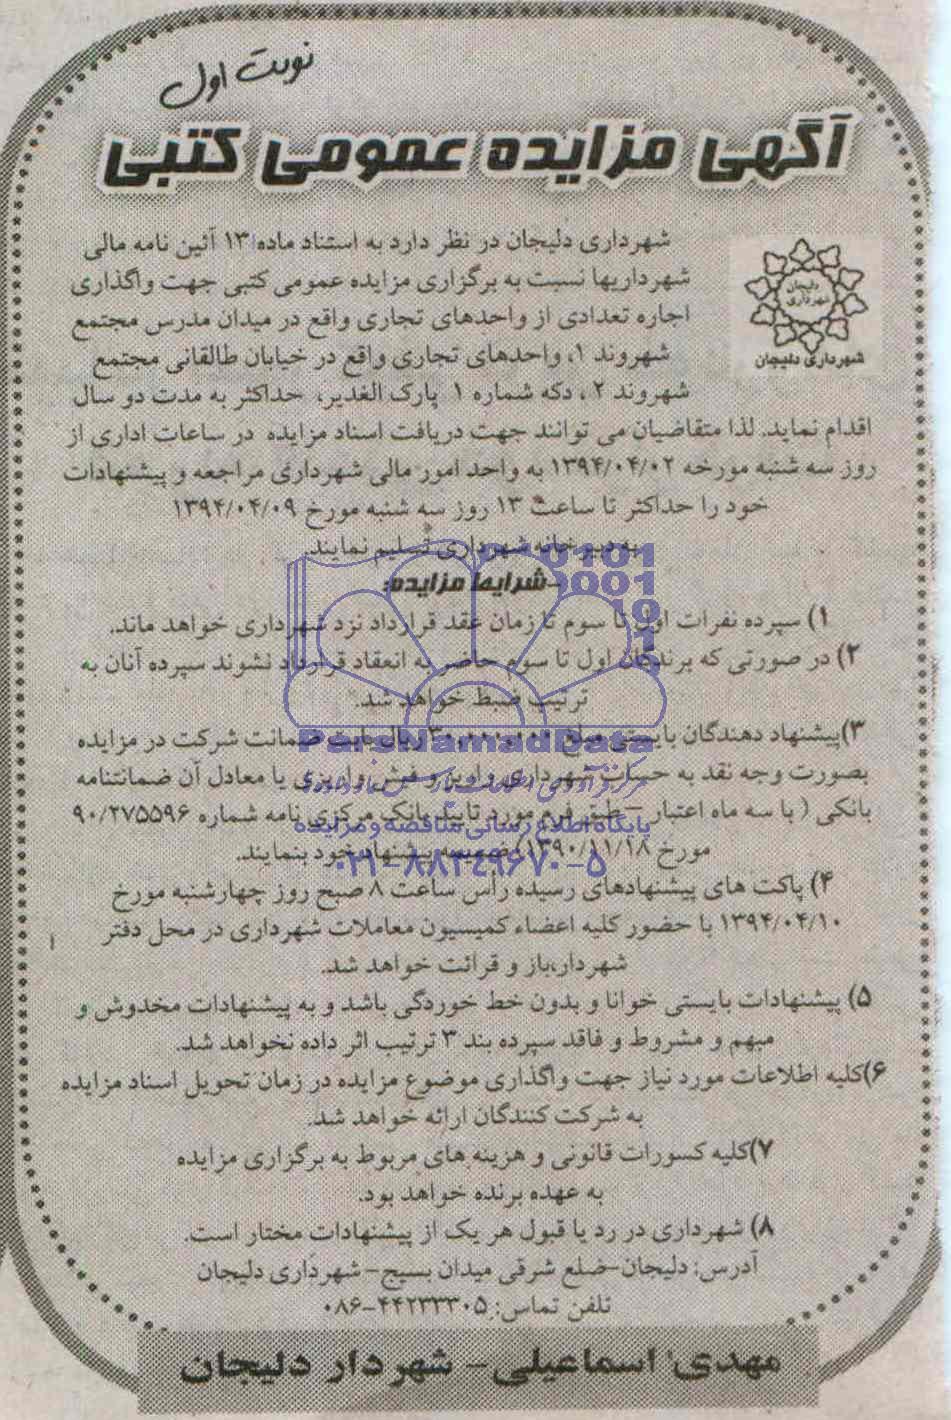 نوبت اول
آگهی مزایده عمومی کتبی
دلیجان
شهرداری
شهرداری دلیجان
شهرداری دلیجان در نظر دارد به استناد ماده ۱۳ آئین نامه مالی
شهرداریها نسبت به برگزاری مزایده عمومی کتبی جهت واگذاری
اجاره تعدادی از واحدهای تجاری واقع در میدان مدرس مجتمع
شهروند ۱، واحدهای تجاری واقع در خیابان طالقانی مجتمع
شهروند ۲، دکه شماره ۱ پارک الغدیر، حداکثر به مدت دو سال
اقدام نماید. لذا متقاضیان می توانند جهت دریافت اسناد مزایده در ساعات اداری از
روز سه شنبه مورخه ۱۳۹۴/۰۴/۰۲ به واحد امور مالی شهرداری مراجعه و پیشنهادات
خود را حداکثر تا ساعت ۱۳ روز سه شنبه مورخ ۱۳۹۴/۰۴/۰۹
به دبیرخانه شهرداری تسلیم نمایند.
-شرایط مزایده:
۱) سپرده نفرات اول تا سوم تا زمان عقد قرارداد نزد شهرداری خواهد ماند.
۲) در صورتی که برندگان اول تا سوم حاضر به انعقاد قرارداد نشوند سپرده آنان به
ترتیب ضبط خواهد شد.
۳)پیشنهاد دهندگان بایستی مبلغ ریال بابت ضمانت شرکت در مزایده
بصورت وجه نقد به حساب شهرداری واریز و فیش واریزی یا معادل آن ضمانتنامه
بانکی ( با سه ماه اعتبار – طبق فرم مورد تایید بانک مرکزی نامه شماره ۹۰/۲۷۵۵۹۶
مورخ ۱۳۹۰/۱۱/۱۸) ضمیمه پیشنهاد خود بنمایند.
۴) پاکت های پیشنهادهای رسیده رأس ساعت ۸ صبح روز چهارشنبه مورخ
۱۳۹۴/۰۴/۱۰ با حضور کلیه اعضاء کمیسیون معاملات شهرداری در محل دفتر
شهردار،باز و قرائت خواهد شد.
۵) پیشنهادات بایستی خوانا و بدون خط خوردگی باشد و به پیشنهادات مخدوش و
مبهم و مشروط و فاقد سپرده بند ۳ ترتیب اثر داده نخواهد شد.
۶)کلیه اطلاعات مورد نیاز جهت واگذاری موضوع مزایده در زمان تحویل اسناد مزایده
به شرکت کنندگان ارائه خواهد شد.
۷)کلیه کسورات قانونی و هزینه های مربوط به برگزاری مزایده
به عهده برنده خواهد بود.
۸) شهرداری در رد یا قبول هر یک از پیشنهادات مختار است.
آدرس: دلیجان-ضلع شرقی میدان بسیج-شهرداری دلیجان
تلفن تماس: ۰۸۶-۴۴۲۳۳۳۰۵
مهدی اسماعیلی- شهردار دلیجان
ParsNamadData
پایگاه اطلاع رسانی مناقصه و مزایده
۰۲۱-۸۸۳۴۹۶۷۰-۵